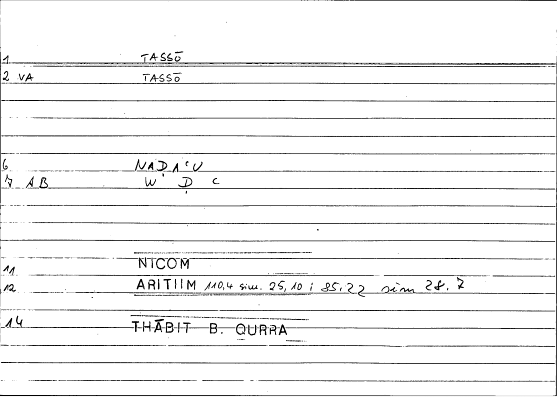 1 TASSŌ
2 VA TASSŌ
6 NADAʿU
7 AB WʾḌʿ
11 NICOM
12 ARITIIM 110,4 sim. 25,10 ; 85,22 sim 28.7
14 THĀBIT B. QURRA